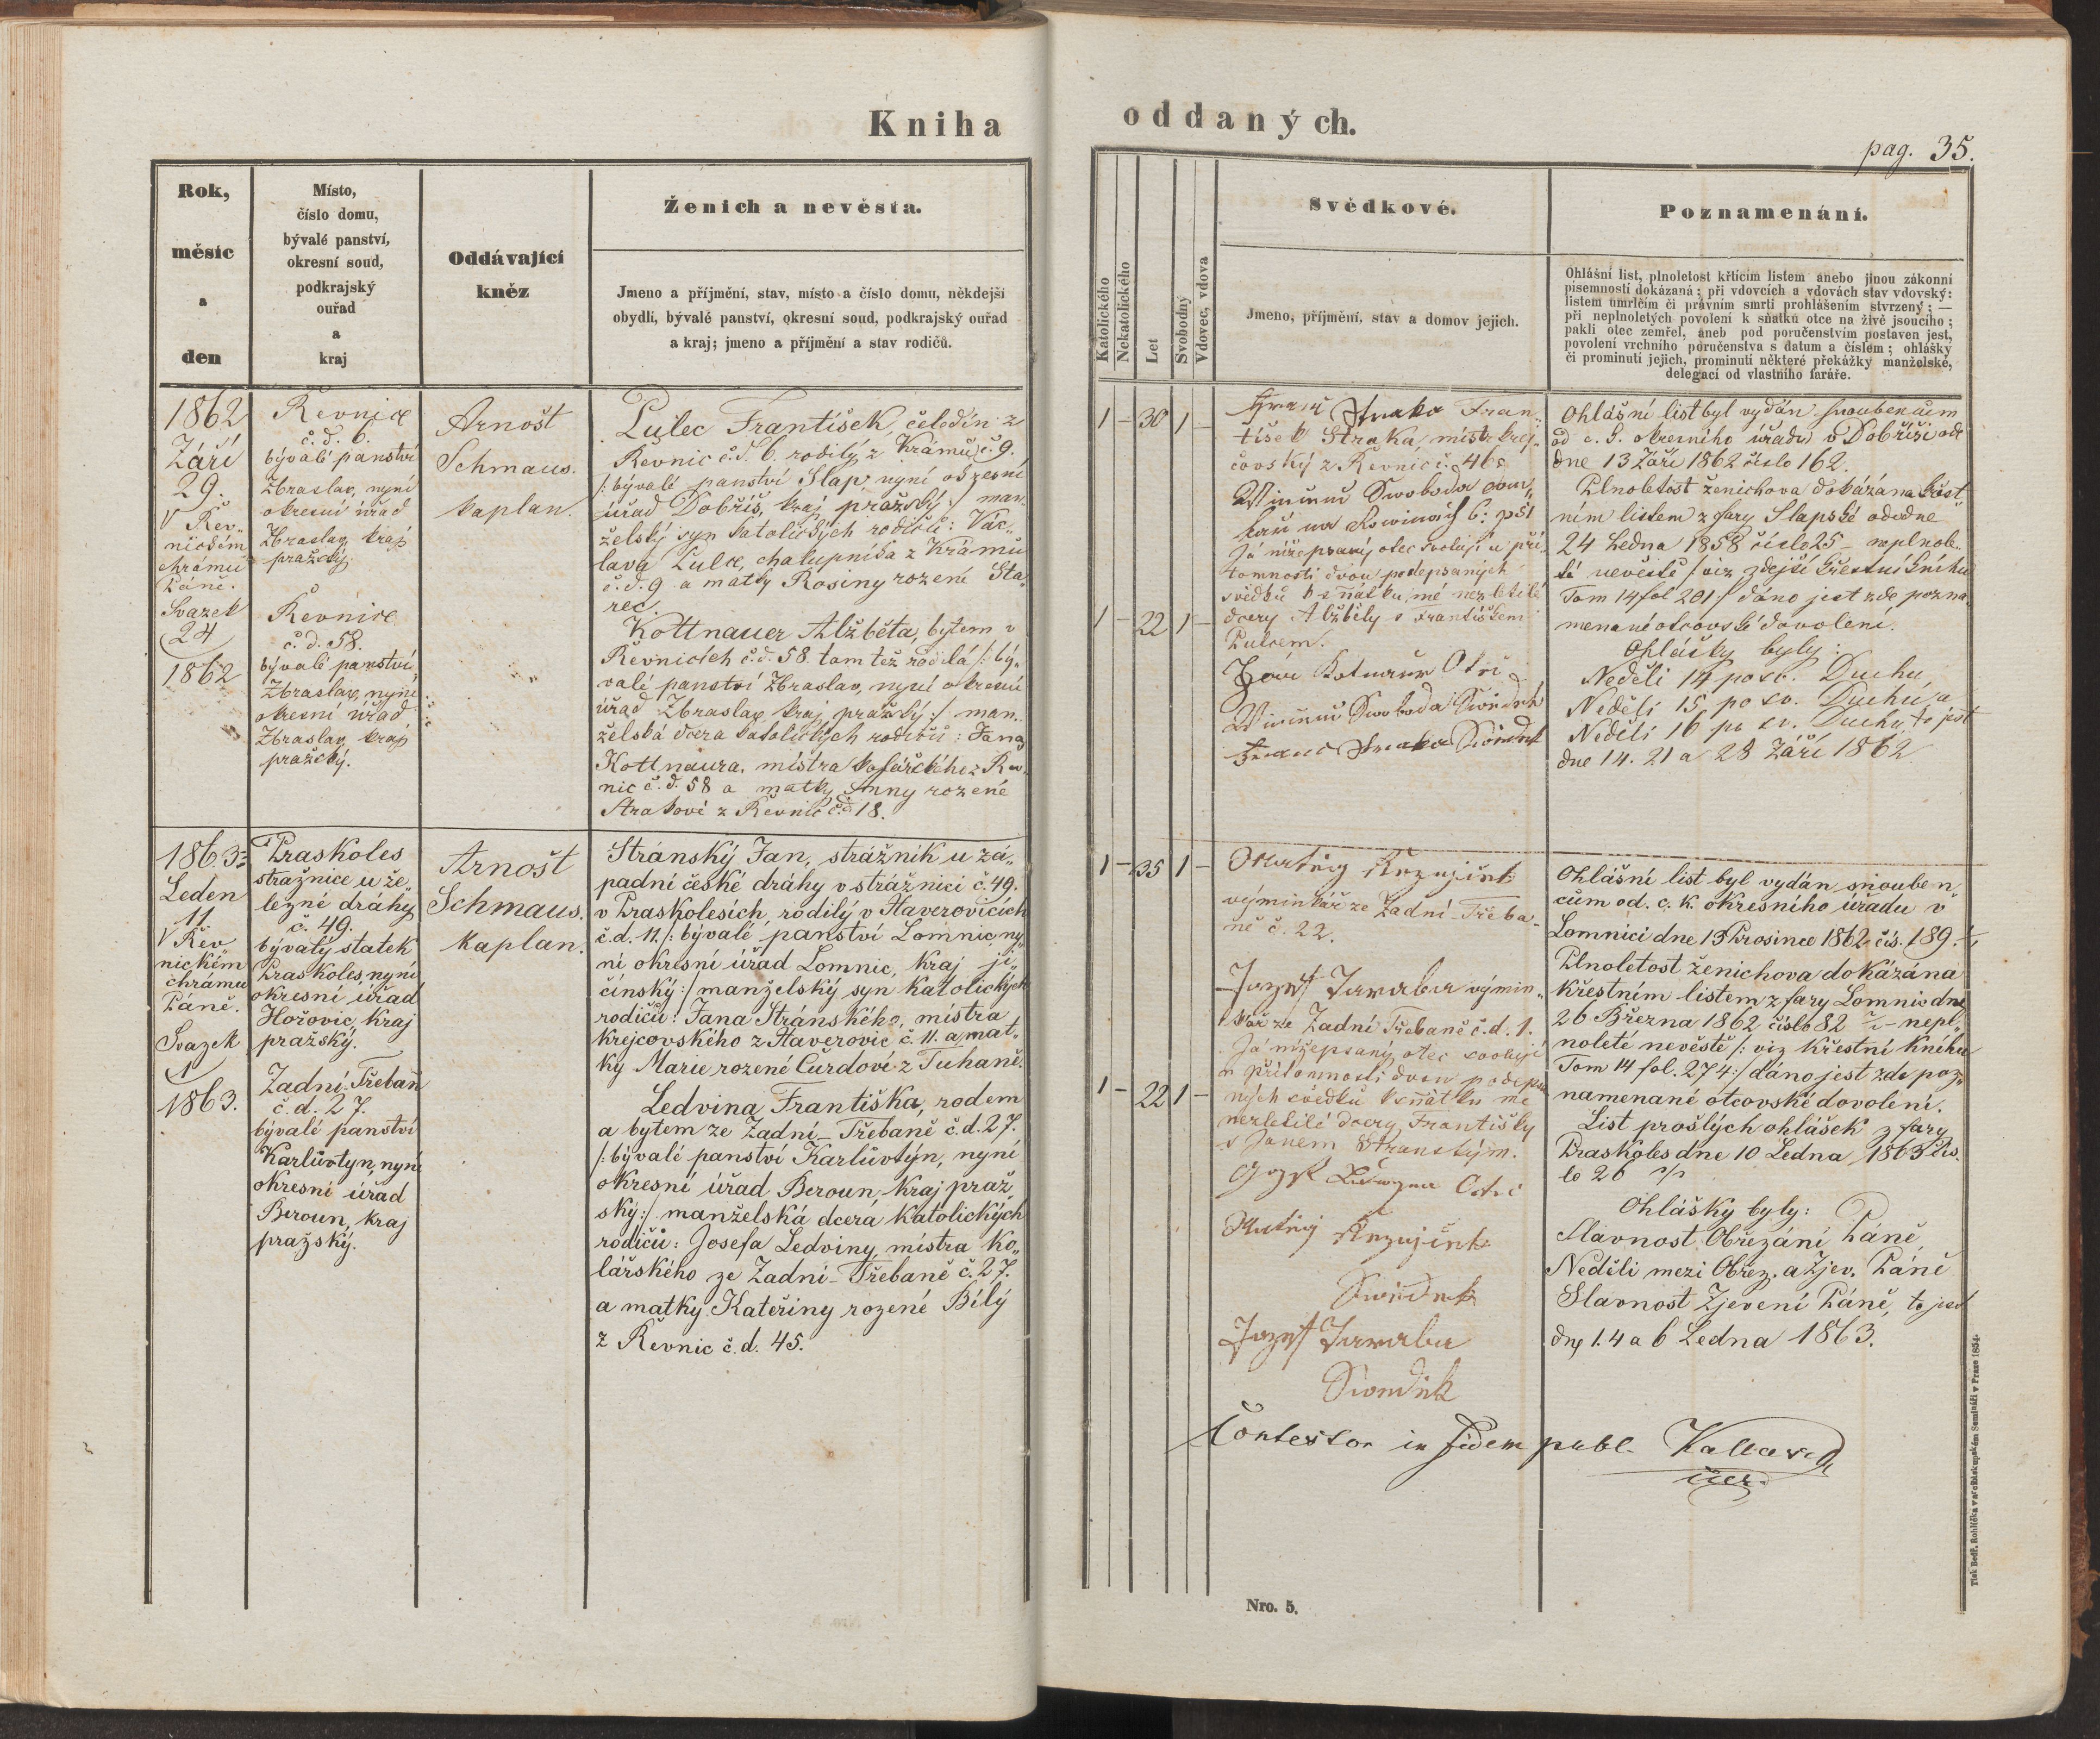 Kniha
Rok,
měsíc
a
den
Místo,
číslo domu,
bývalé panství,
okresní soud,
podkrajský
ouřad
a
kraj
Oddávající
kněz
Ženich a nevěsta.
Jmeno a příjmění, stav, místo a číslo domu, někdejší
obydlí, bývalé panství, okresní soud, podkrajský ouřad
a kraj; jmeno a příjmění a stav rodičů.
1862
Září
29.
V Řev„
nickém
chrámu
Páně.
Svazek
24
1862
Řevnice
č. d. 6.
bývalé panství
Zbraslav, nyní
okresní úřad
Zbraslav, kraj
pražský.
Řevnice
č. d. 58.
bývalé panství
Zbraslav, nyní
okresní úřad
Zbraslav, kraj
pražský.
Arnošt
Schmaus.
kaplan.
Pulec František, čeledín z
Řevnic č. d. 6. rodilý z Krámů č. 9.
/: bývalé panství Slap nyní okresní
úřad Dobříš, kraj pražský :/ man„
želský syn katolických rodičů: Vác„
lava Pulce, chalupníka z Krámů
č. d. 9 a matky Rosiny rozené Sta„
rec.
Kottnauer Alžběta, bytem v
Řevnicích č. d. 58. tam též rodilá /: bý„
valé panství Zbraslav, nyní okresní
úřad Zbraslav, kraj pražský :/ man„
želská dcera katolických rodičů: Jana
Kottnaura, mistra kolářského z Řev„
nic č. d. 58 a matky Anny rozené
Strakové z Řevnic č. d. 18.
1863
Leden
11.
V Řev„
nickém
chrámu
Páně.
Svazek
1
1863.
Praskoles
strážnice u že„
lezné dráhy
č. 49.
bývalý statek
Praskoles, nyní
okresní úřad
Hořovic, kraj
pražský.
Zadní-Třebaň
č. d. 27.
bývalé panství
Karlůvtyn, nyní
okresní úřad
Beroun, kraj
pražský.
Arnošt
Schmaus.
kaplan.
Stránský Jan, strážník u zá„
padní české dráhy v strážnici č. 49.
v Praskolesích, rodilý v Staverovičích
č. d. 11. /: bývalé panství Lomnic, ny„
ní okresní úřad Lomnic, kraj ji„
čínský :/ manželský syn katolických
rodičů: Jana Stránského, mistra
krejcovského z Staverovic č. 11. a mat„
ky Marie rozené Čurdové z Tuhaně.
Ledvina Františka, rodem
a bytem ze Zadní-Třebaně č. d. 27.
/: bývalé panství Karlůvtýn, nyní
okresní úřad Beroun, kraj praž„
ský :/ manželská dcera katolických
rodičů: Josefa Ledviny, mistra ko„
lářského ze Zadní-Třebaně č. 27.
a matky Kateřiny rozené Bílý
z Řevnic č. d. 45.
oddaných.
pag. 35.
Katolického
Nekatolického
Let
Svobodný
Vdovec, vdova
Svědkové.
Jmeno, příjmění, stav a domov jejich.
Poznamenání.
Ohlášní list, plnoletost křtícím listem anebo jinou zákonní
písemností dokázaná; při vdovcích a vdovách stav vdovský:
listem úmrlčím či právním smrti prohlášením stvrzený; —
při neplnoletých povolení k sňatku otce na živě jsoucího;
pakli otec zemřel, aneb pod poručenstvím postaven jest,
povolení vrchního poručenstva s datum a číslem; ohlášky
či prominutí jejich, prominutí některé překážky manželské,
delegací od vlastního faráře.
1 – 30 1 –
1 – 22 1 –
Straka Fran„
tišek Straka, mistr krej„
čovský z Řevnic č. 46.
Swoboda
Já nížepsaný otec svoluji u pří„
tomnosti dvou podepsaných
svědků k sňatku mé nezletilé
dcery Alžběty s Františkem
Pulcem.
Swoboda Swiedek
Straka Swiedek
Ohlášní list byl vydán snoubencům
od c. k. okresního úřadu v Dobříši ode
dne 13 Září 1862 číslo 162.
Plnoletost ženichova dokázána křest„
ním listem z fary Slapské ode dne
24 Ledna 1858 číslo 25 – neplnole„
té nevěstě /: viz zdejší křestní knihu
Tom 14 fol 201 :/ dáno jest zde pozna„
menané otcovské dovolení.
Ohlášky byly:
Neděli 14 po sv. Duchu,
Neděli 15. po sv. Duchu a
Neděli 16 po sv. Duchu, to jest
dne 14. 21 a 28 Září 1862.
1 – 35 1 –
1 – 22 1 –
výminkář ze Zadní-Třeba„
ně č. 22.
Jozef výmin„
kář ze Zadní Třebaně č. d. 1.
Já nížepsaný otec svoluji
u přítomnosti dvou podepsa„
ných svědků k sňatku mé
nezletilé dcery Františky
s Janem Stranským.
Swiedek
Jozef
Swiedek
Ohlášní list byl vydán snouben„
cům od. c. k. okresního úřadu v
Lomnici dne 13 Prosince 1862 čís. 189.
Plnoletost ženichova dokázána
křestním listem z fary Lomnic dne
26 Března 1862 číslo 82 – nepl„
noleté nevěstě /: viz křestní knihu
Tom 14 fol. 274 :/ dáno jest zde poz„
namenané otcovské dovolení.
List prošlých ohlášek z fary
Praskoles dne 10 Ledna 1863 čís„
lo 26
Ohlášky byly:
Slavnost Obřezání Páně,
Neděli mezi Obřez. a Zjev. Páně
Slavnost Zjevení Páně, to jest
dne 1. 4 a 6 Ledna 1863.
Contestor in fidem publ.
Nro. 5.
Tisk Bedř. Rohlíčka v arcibiskupském Semináři v Praze 1854.